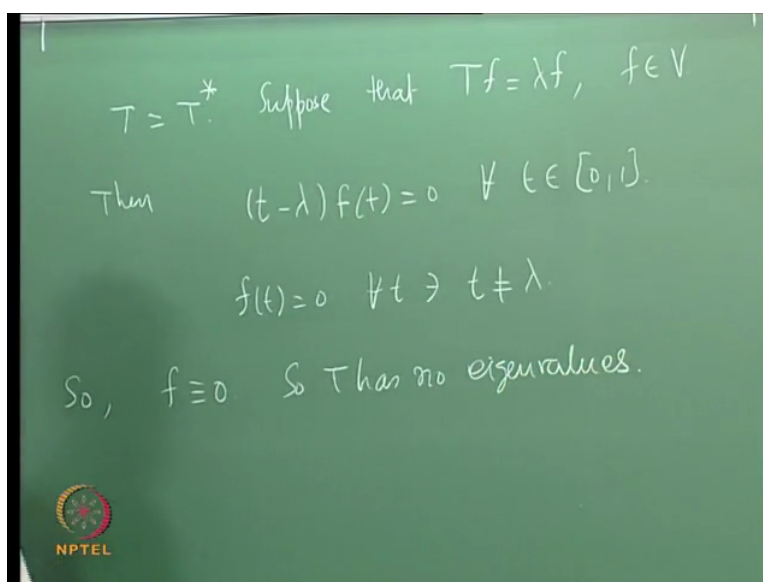 T = T*. Suppose that Tf = λf, f ∈ V
Then (t-λ)f(t) = 0 ∀ t ∈ [0,1].
f(t) = 0 ∀ t ∋ t ≠ λ.
So, f ≡ 0. So T has no eigenvalues.
NPTEL